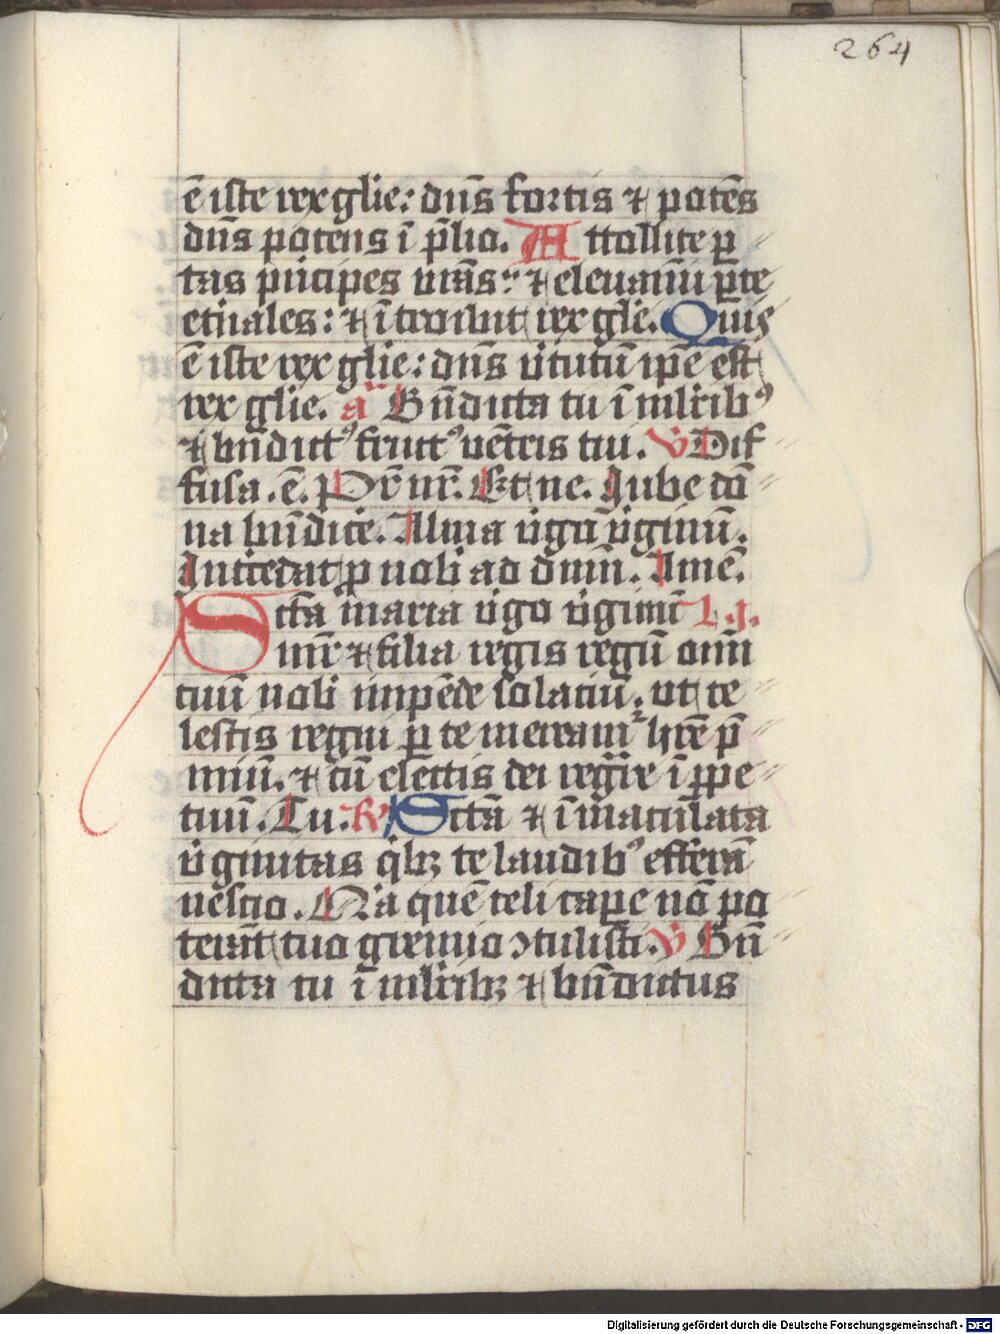 264
ē iste rex glie: dn̄s fortis ⁊ potēs
dn̄s potens ī p̄lio. Attollite ꝑ
tas pͥncipes vrās: ⁊ eleuamī ꝑte
et̄nales: ⁊ ītroibit rex gle. Quis
ē iste rex glie: dn̄s v̄tutū ip̄e est
rex glie. añ Bn̄dicta tu ī mlr̄ibꝰ
⁊ bn̄dictꝰ fructꝰ uētris tui. ℣ Dif
fusa. ē. Pr̄ nr̄. Et ne. Jube dō
na bn̄dice. Alma v̄go v̄ginū.
Intercedat ꝓ nob̄ ad dn̄m. Amē.
Sctā maria v̄go v̄ginū L. j.
mr̄ ⁊ filia regis regū om̄
tuū nob̄ impēde solaciū. ut ce
lestis regni ꝑ te mereamꝛ hr̄e p̄
miū. ⁊ cū electis dei reḡre ī ꝑpe
tuū. Tu. ℟ Sctā ⁊ īmaculata
v̄ginitas qͥbꝫ te laudibꝰ efferā
nescio. Na quē celi caꝑe nō po
terāt tuo gremio ꝯtulisti. ℣ Bn̄
dicta tu ī mlr̄ibꝫ ⁊ bn̄dictus
Digitalisierung gefördert durch die Deutsche Forschungsgemeinschaft - DFG